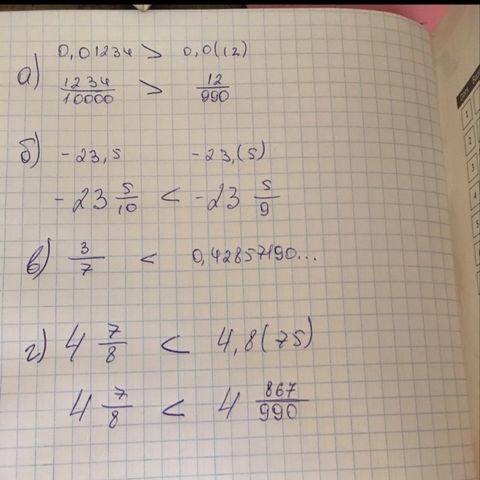 а) 0,01234 > 0,0(12)
1234/10000 > 12/990
б) -23,5 -23,(5)
-23 5/10 < -23 5/9
в) 3/7 < 0,42857190...
г) 4 7/8 < 4,8(75)
4 7/8 < 4 867/990